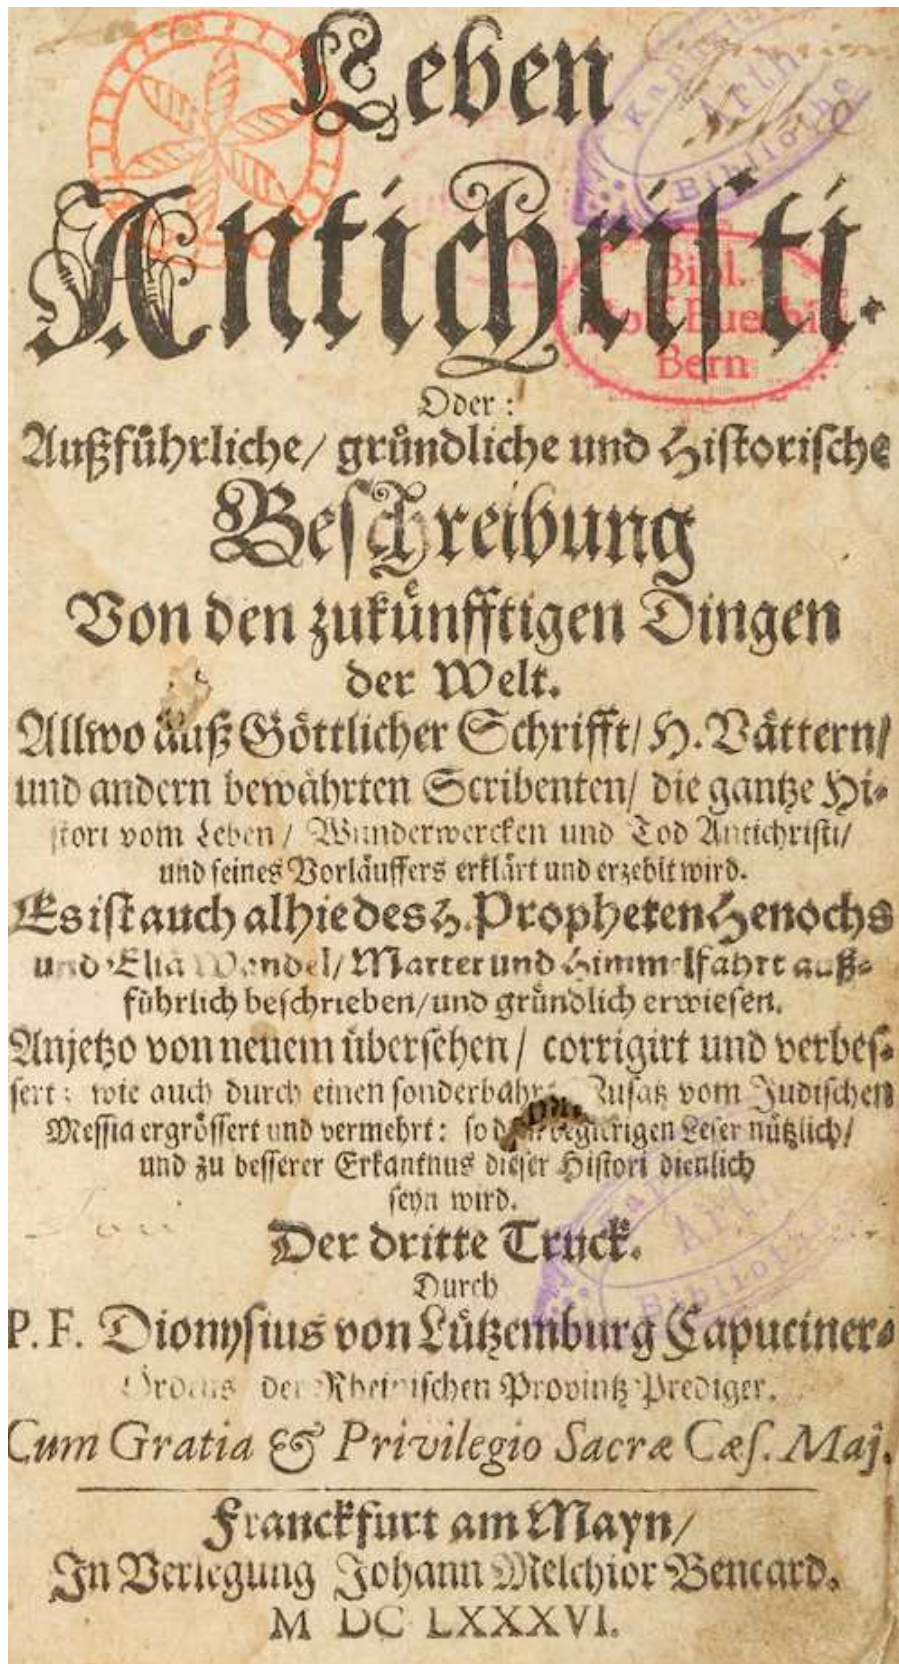 Leben
Antichristi.
Oder:
Außführliche/ gründliche und Historische
Beschreibung
Von den zukünfftigen Dingen
der Welt.
Allwo auß Göttlicher Schrifft/ H. Vättern/
und andern bewährten Scribenten/ die gantze Hi-
stori vom Leben/ Wunderwercken und Tod Antichristi/
und seines Vorläuffers erklärt und erzehlt wird.
Es ist auch alhie des H. Propheten Henochs
und Eliä Wandel/ Marter und Himmelfahrt auß-
führlich beschrieben/ und gründlich erwiesen.
Anjetzo von neuem übersehen/ corrigirt und verbes-
sert: wie auch durch einen sonderbahren Zusatz vom Jüdischen
Messia ergrössert und vermehrt: so dem begierigen Leser nützlich/
und zu besserer Erkantnus dieser Histori dienlich
seyn wird.
Der dritte Truck.
Durch
P. F. Dionysius von Lützemburg Capuciner-
Ordens der Rheinischen Provintz Prediger.
Cum Gratia & Privilegio Sacræ Cæs. Maj.
Franckfurt am Mayn/
In Verlegung Johann Melchior Bencard.
M DC LXXXVI.
Arth
Bibliothe
Bibl.
Bern
Arth
Biblioth